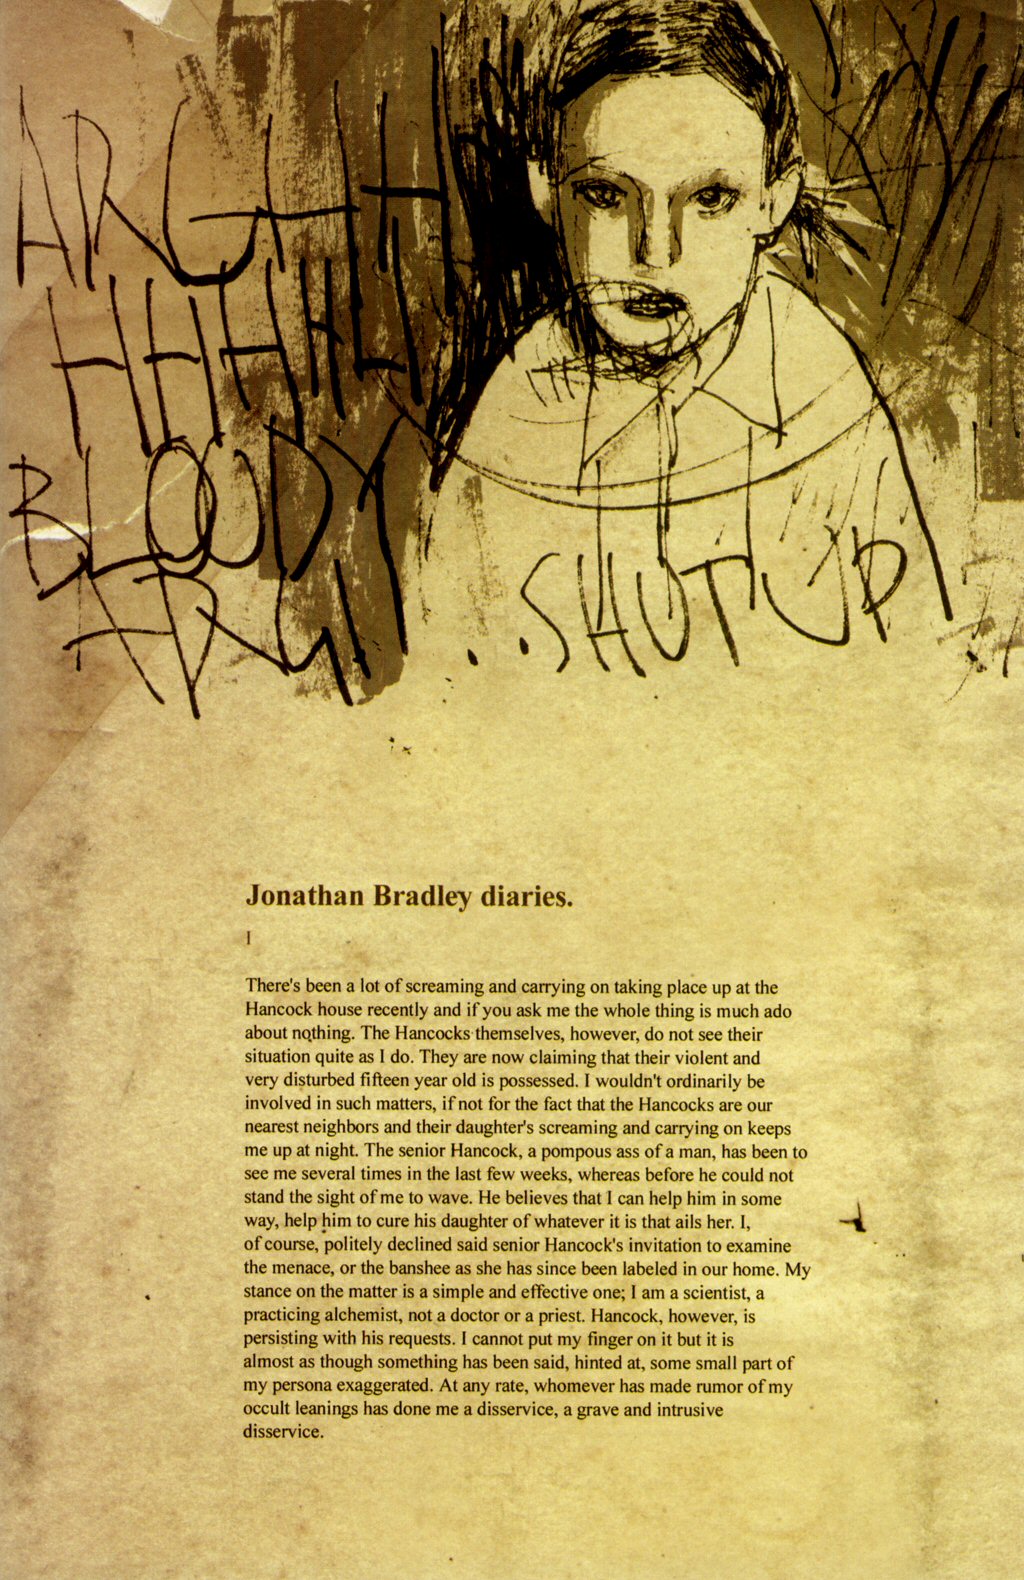 ARGHH
HHHHHH
BLOODY
ARGH
..SHUT UP
Jonathan Bradley diaries.
I
There's been a lot of screaming and carrying on taking place up at the
Hancock house recently and if you ask me the whole thing is much ado
about nothing. The Hancocks themselves, however, do not see their
situation quite as I do. They are now claiming that their violent and
very disturbed fifteen year old is possessed. I wouldn't ordinarily be
involved in such matters, if not for the fact that the Hancocks are our
nearest neighbors and their daughter's screaming and carrying on keeps
me up at night. The senior Hancock, a pompous ass of a man, has been to
see me several times in the last few weeks, whereas before he could not
stand the sight of me to wave. He believes that I can help him in some
way, help him to cure his daughter of whatever it is that ails her. I,
of course, politely declined said senior Hancock's invitation to examine
the menace, or the banshee as she has since been labeled in our home. My
stance on the matter is a simple and effective one; I am a scientist, a
practicing alchemist, not a doctor or a priest. Hancock, however, is
persisting with his requests. I cannot put my finger on it but it is
almost as though something has been said, hinted at, some small part of
my persona exaggerated. At any rate, whomever has made rumor of my
occult leanings has done me a disservice, a grave and intrusive
disservice.